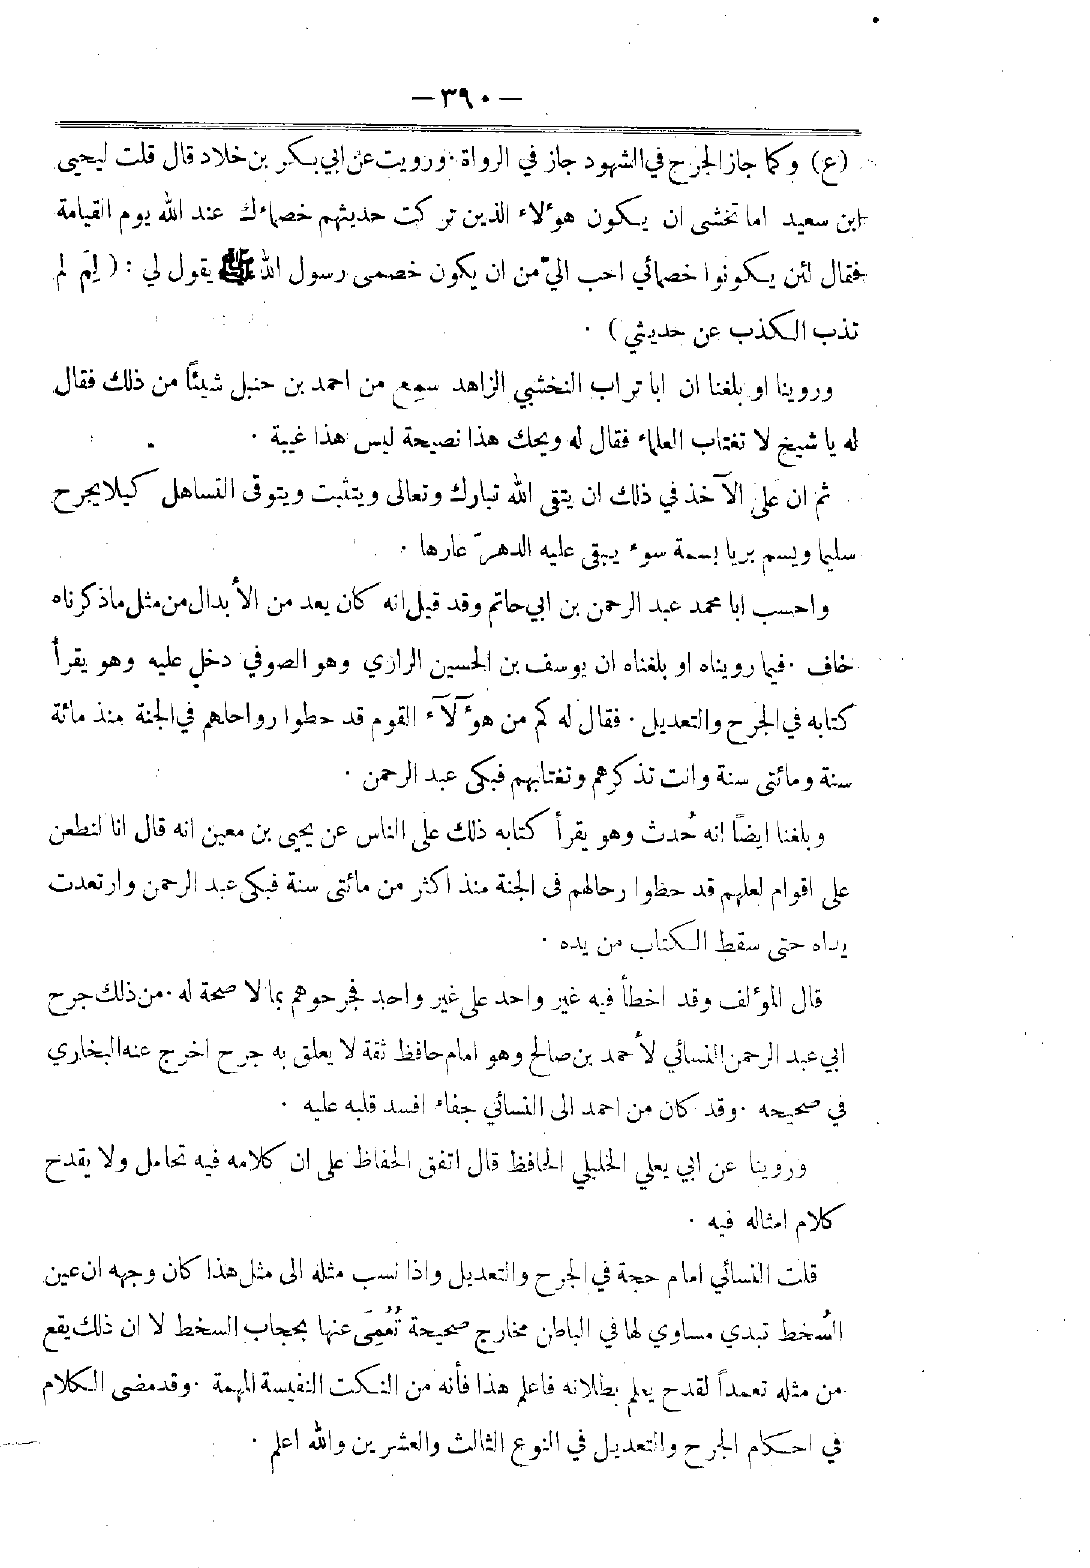 — ٣٩٠ —
(ع) وكما جاز الجرح في الشهود جاز في الرواة . ورويت عن ابي بكر بن خلاد قال قلت ليحيى
ابن سعيد اما تخشى ان يكون هؤلاء الذين تركت حديثهم خصماءك عند الله يوم القيامة
فقال لئن يكونوا خصمائي احب اليّ من ان يكون خصمى رسول الله ﷺ يقول لي : ( لِمَ لم
تذب الكذب عن حديثي ) .
وروينا او بلغنا ان ابا تراب النخشبي الزاهد سمع من احمد بن حنبل شيئًا من ذلك فقال
له يا شيخ لا تغتاب العلماء فقال له ويحك هذا نصيحة ليس هذا غيبة .
ثم ان على الآخذ في ذلك ان يتقى الله تبارك وتعالى ويتثبت ويتوقى التساهل كيلا يجرح
سليما ويسم بريا بسمة سوء يبقى عليه الدهر عارها .
واحسب ابا محمد عبد الرحمن بن ابي حاتم وقد قيل انه كان يعد من الأبدال من مثل ماذكرناه
خاف . فيما رويناه او بلغناه ان يوسف بن الحسين الرازي وهو الصوفي دخل عليه وهو يقرأ
كتابه في الجرح والتعديل . فقال له كم من هؤلآء القوم قد حطوا رواحلهم في الجنة منذ مائة
سنة ومائتى سنة وانت تذكرهم وتغتابهم فبكى عبد الرحمن .
وبلغنا ايضًا انه حُدث وهو يقرأ كتابه ذلك على الناس عن يحيى بن معين انه قال انا لنطعن
على اقوام لعلهم قد حطوا رحالهم فى الجنة منذ اكثر من مائتى سنة فبكى عبد الرحمن وارتعدت
يداه حتى سقط الكتاب من يده .
قال المؤلف وقد اخطأ فيه غير واحد على غير واحد فجرحوهم بما لا صحة له . من ذلك جرح
ابي عبد الرحمن النسائي لأحمد بن صالح وهو امام حافظ ثقة لا يعلق به جرح اخرج عنه البخاري
في صحيحه . وقد كان من احمد الى النسائي جفاء افسد قلبه عليه .
وروينا عن ابي يعلي الخليلي الحافظ قال اتفق الحفاظ على ان كلامه فيه تحامل ولا يقدح
كلام امثاله فيه .
قلت النسائي امام حجة في الجرح والتعديل واذا نسب مثله الى مثل هذا كان وجهه ان عين
السُخط تبدي مساوي لها في الباطن مخارج صحيحة تُعْمِى عنها بحجاب السخط لا ان ذلك يقع
من مثله تعمداً لقدح يعلم بطلانه فاعلم هذا فأنه من النكت النفيسة المهمة . وقد مضى الكلام
في احكام الجرح والتعديل في النوع الثالث والعشرين والله اعلم .